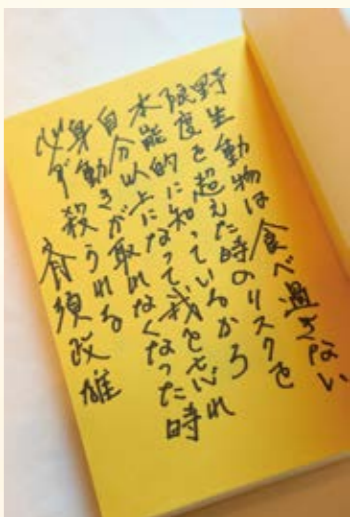 野生動物は食べ過ぎない
限度を超えた時のリスクを
本能的に知っているから
自分以上になって我を忘れ
身動きが取れなくなった時
必ず殺られる
斉須政雄